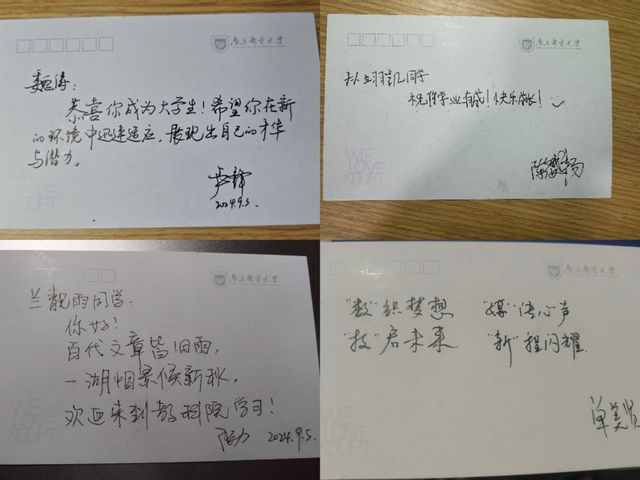 南京邮电大学
魏涛：
恭喜你成为大学生！希望你在新
的环境中迅速适应，展现出自己的才华
与潜力。
2024.9.5.
WE
LOVE
NJUPT
南京邮电大学
翊凯同学
祝你学业有成！快乐成长！
WE
LOVE
NJUPT
南京邮电大学
兰靓雨同学：
你好！
百代文章皆旧雨，
一湖烟景候新秋。
欢迎来到教科院学习！
2024.9.5.
WE
LOVE
NJUPT
南京邮电大学
“数”织梦想 “媒”传心声
“技”启未来 “新”程闪耀
单美贤